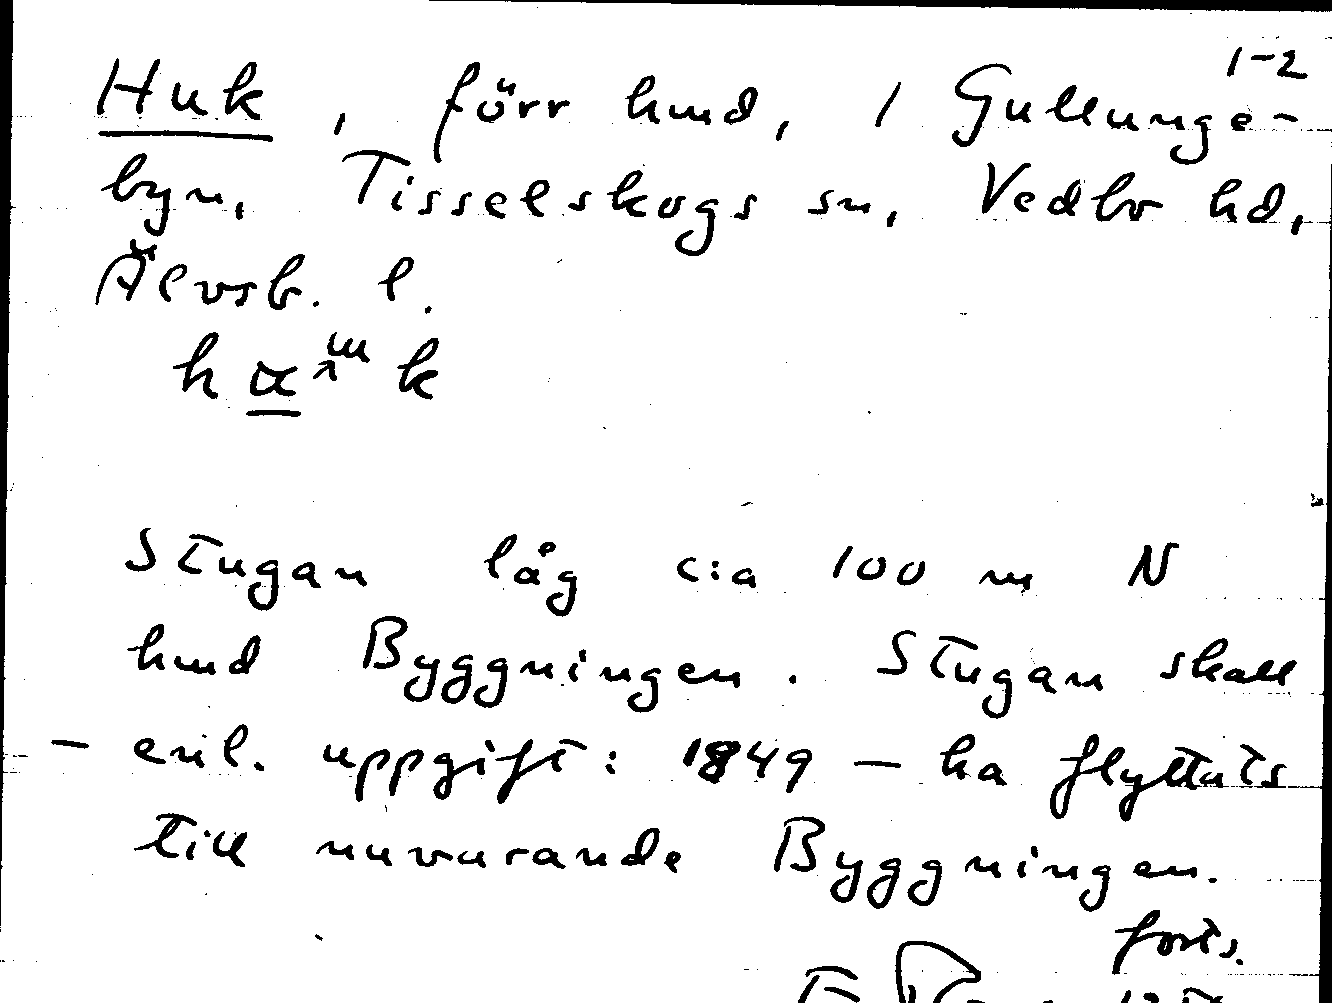 1-2
Huk, förr hmd, i Gullunge-
byn, Tisselskogs sn, Vedbo hd,
Älvsb. l.
Stugan låg c:a 100 m N
hmd Byggningen. Stugan skall
- enl. uppgift: 1849 - ha flyttats
till nuvarande Byggningen.
forts.